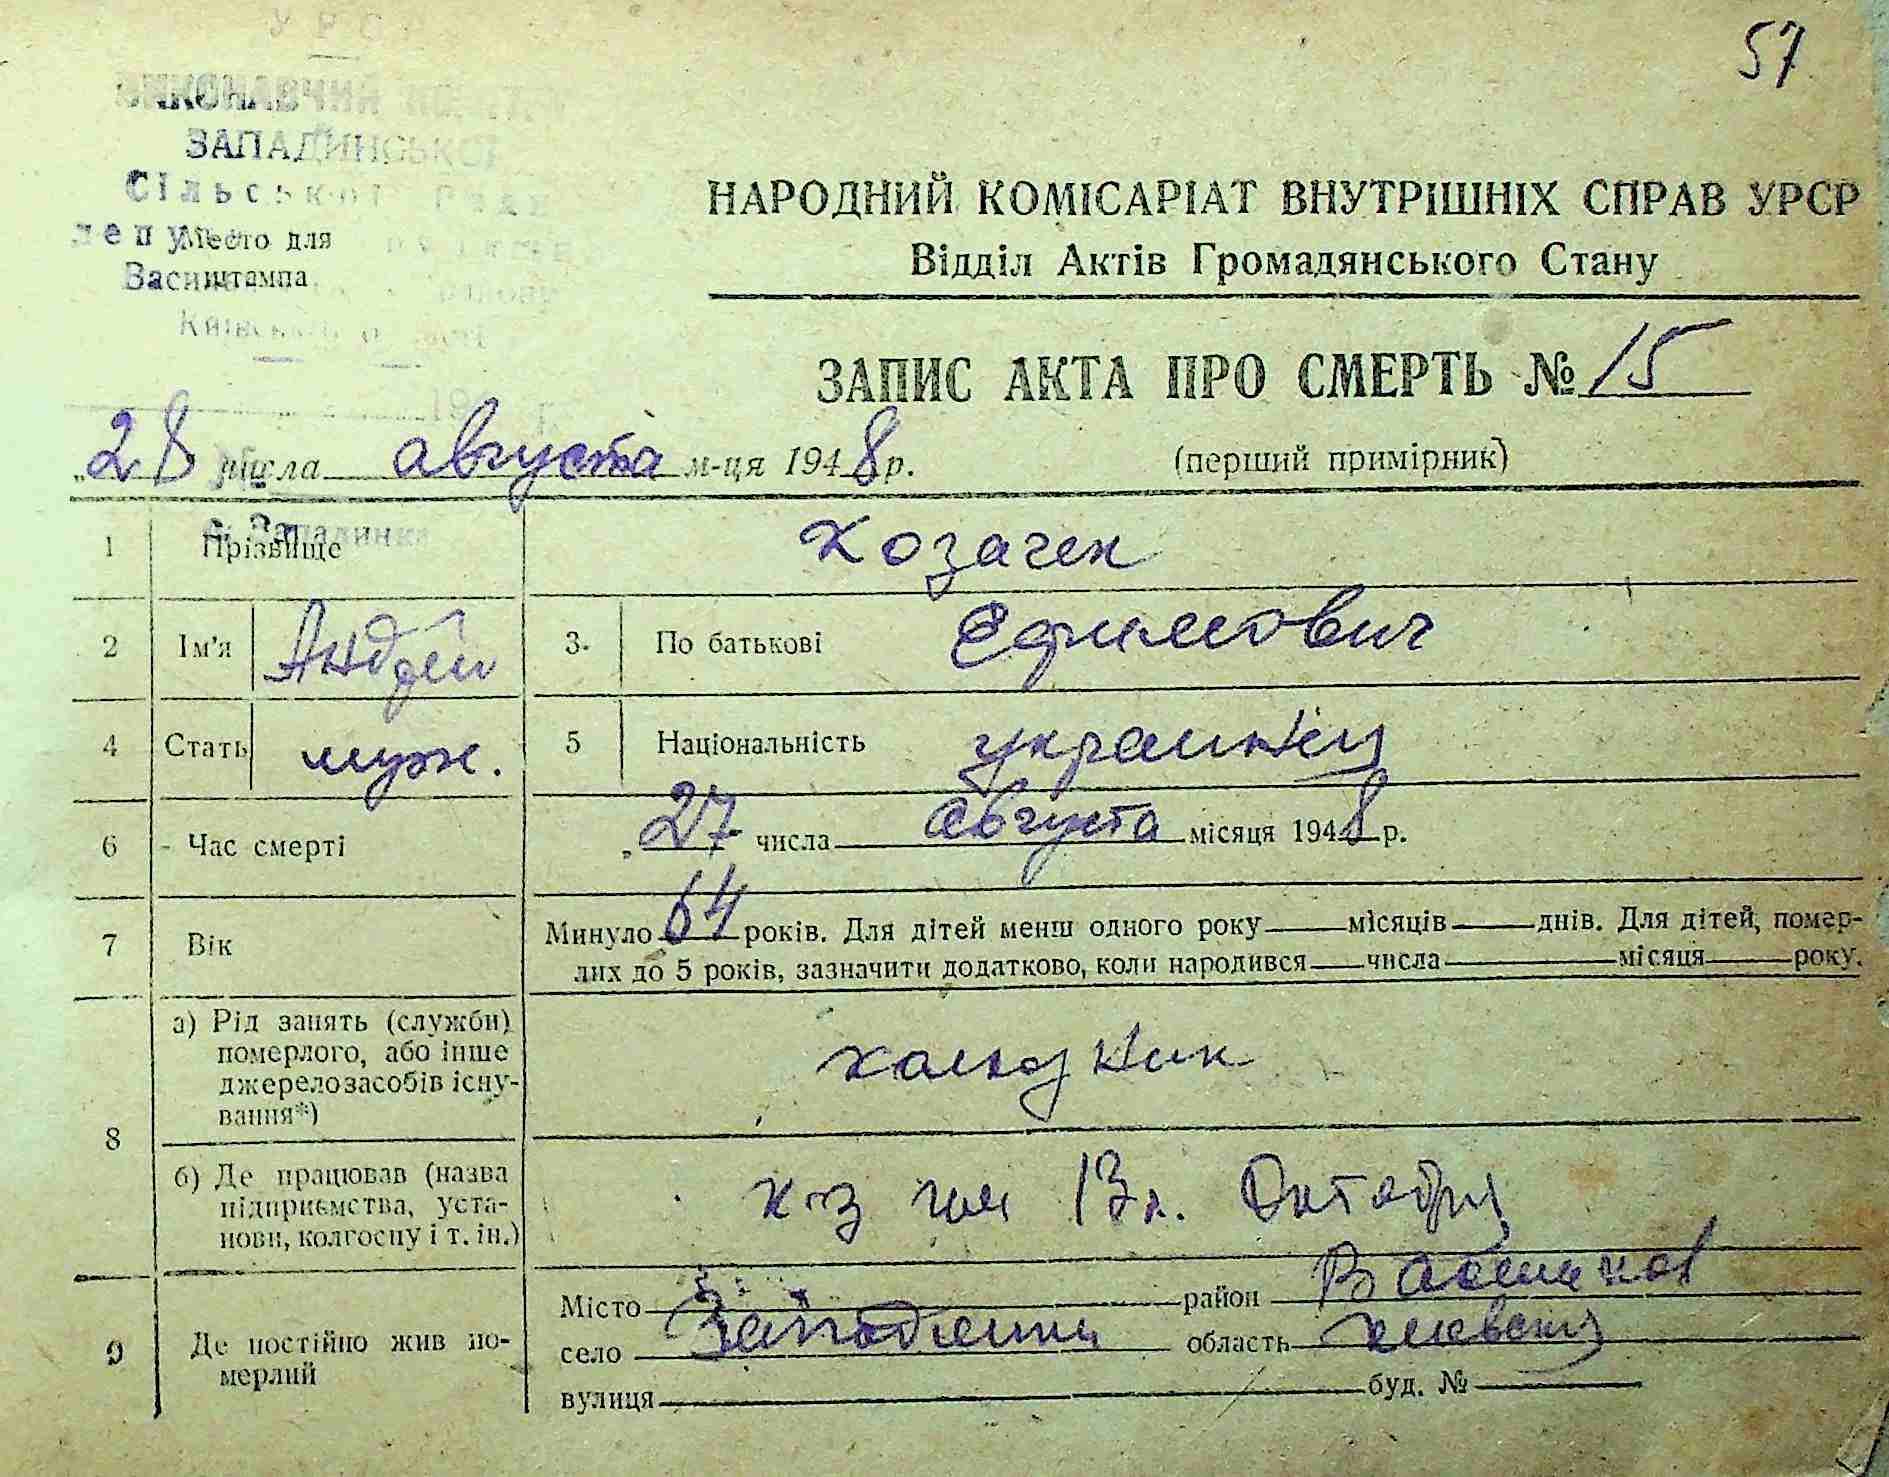 57
УРСР
ВИКОНАВЧИЙ
ЗАПАДИНСЬКОЇ
Сільської Ради
депу
Место для
штампа
Київської області
НАРОДНИЙ КОМІСАРІАТ ВНУТРІШНІХ СПРАВ УРСР
Відділ Актів Громадянського Стану
ЗАПИС АКТА ПРО СМЕРТЬ № 15
"28 числа августа м-ця 1948 р. (перший примірник)
с. Западинка
1 Прізвище Козачек
2 Ім'я Андрей 3. По батькові Ефимович
4 Стать муж. 5 Національність украинец
6 Час смерті 27 числа августа місяця 1948 р.
7 Вік Минуло 64 років. Для дітей менш одного року місяців днів. Для дітей, помер-
лих до 5 років, зазначити додатково, коли народився числа місяця року.
8 а) Рід занять (служби)
померлого, або інше
джерело засобів існу-
вання*) колхозник
б) Де працював (назва
підприємства, уста-
нови, колгоспу і т. ін.) к-з им 13 л. Октября
9 Де постійно жив по-
мерлий
Місто район Васильков
село область киевская
вулиця буд. №